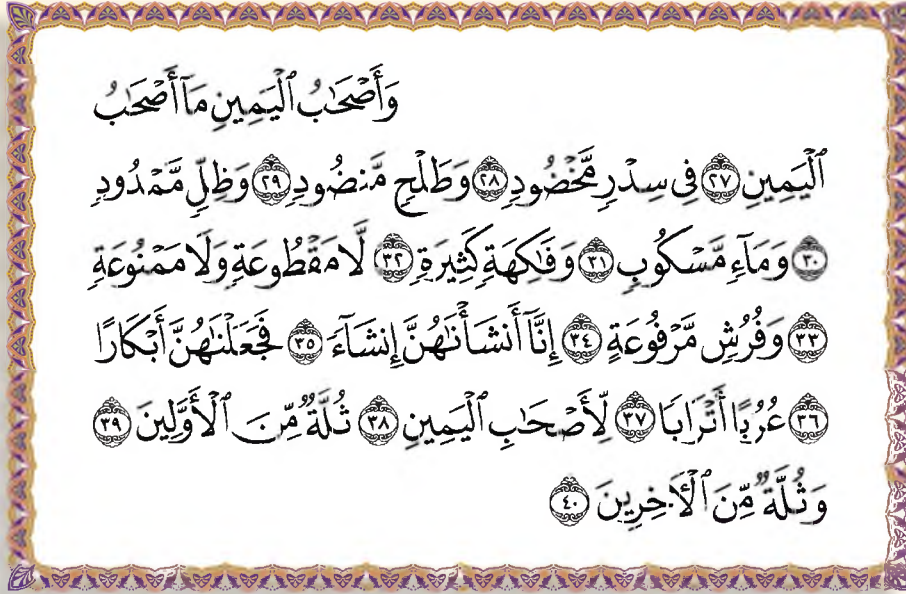 وَأَصْحَٰبُ ٱلْيَمِينِ مَآ أَصْحَٰبُ
ٱلْيَمِينِ ٢٧ فِى سِدْرٍ مَّخْضُودٍ ٢٨ وَطَلْحٍ مَّنضُودٍ ٢٩ وَظِلٍّ مَّمْدُودٍ
٣٠ وَمَآءٍ مَّسْكُوبٍ ٣١ وَفَٰكِهَةٍ كَثِيرَةٍ ٣٢ لَّا مَقْطُوعَةٍ وَلَا مَمْنُوعَةٍ
٣٣ وَفُرُشٍ مَّرْفُوعَةٍ ٣٤ إِنَّآ أَنشَأْنَٰهُنَّ إِنشَآءً ٣٥ فَجَعَلْنَٰهُنَّ أَبْكَارًا
٣٦ عُرُبًا أَتْرَابًا ٣٧ لِّأَصْحَٰبِ ٱلْيَمِينِ ٣٨ ثُلَّةٌ مِّنَ ٱلْأَوَّلِينَ ٣٩
وَثُلَّةٌ مِّنَ ٱلْـَٔاخِرِينَ ٤٠